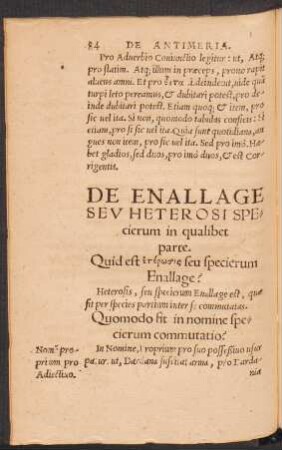 84 DE ANTIMERIA.
Pro Adverbio Coniunctio legitur: ut, Atq;
pro statim. Atq; illum in præceps, prono rapit
alueus amni. Et pro
turpi leto pereamus, & dubitari potest, pro de
inde dubitari potest. Etiam quoq; & item, pro
sic uel ita. Si non, quomodo tabulas conficis: Si
etiam, pro si sic uel ita. Quia sunt quotidiana, an
gues non item, pro sic uel ita. Sed pro imò. Ha-
bet gladios, sed duos, pro imò duos, & est Cor
rigentis.
DE ENALLAGE
SEV HETEROSI SPE-
cierum in qualibet
parte.
Quid est seu specierum
Enallage?
Heterosis, seu specierum Enallage est, quæ
fit per species partium inter se commutatas.
Quomodo fit in nomine spe-
cierum commutatio?
Nomē pro-
prium pro
Adiectiuo.
In Nomine, Proprium pro suo possessiuo usur
pa.ur. ut, Dardana suscitat arma, pro Darda-
nia